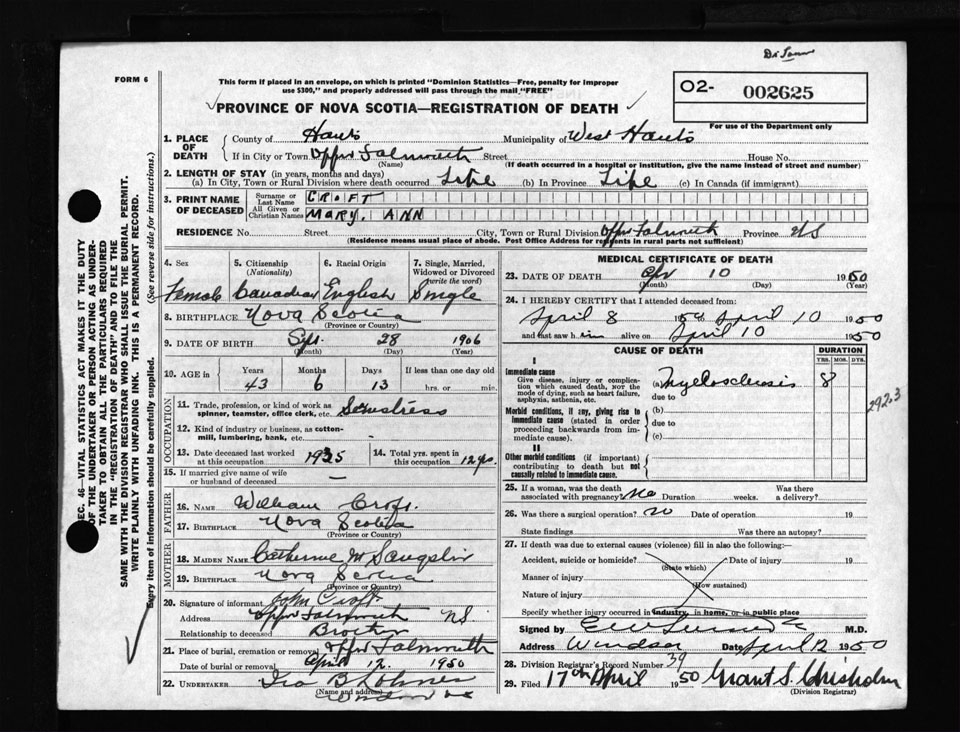 FORM 6
This form if placed in an envelope, on which is printed "Dominion Statistics—Free, penalty for improper
use $300," and properly addressed will pass through the mail "FREE"
✓ PROVINCE OF NOVA SCOTIA—REGISTRATION OF DEATH ✓
O2- 002625
For use of the Department only
1. PLACE OF DEATH
County of Hants Municipality of West Hants
If in City or Town Upper Falmouth Street House No.
(Name) (If death occurred in a hospital or institution, give the name instead of street and number)
2. LENGTH OF STAY (in years, months and days)
(a) In City, Town or Rural Division where death occurred Life (b) In Province Life (c) In Canada (if immigrant)
3. PRINT NAME OF DECEASED
Surname or Last Name CROFT
All Given or Christian Names MARY. ANN
RESIDENCE No. Street City, Town or Rural Division Upper Falmouth Province NS
(Residence means usual place of abode. Post Office Address for residents in rural parts not sufficient)
4. Sex 5. Citizenship (Nationality) 6. Racial Origin 7. Single, Married, Widowed or Divorced (write the word)
Female Canadian English Single
8. BIRTHPLACE Nova Scotia
(Province or Country)
9. DATE OF BIRTH Sept. 28 1906
(Month) (Day) (Year)
10. AGE in Years Months Days If less than one day old
43 6 13 hrs. or min.
OCCUPATION
11. Trade, profession, or kind of work as
spinner, teamster, office clerk, etc. Semstress
12. Kind of industry or business, as cotton-
mill, lumbering, bank, etc. -
13. Date deceased last worked
at this occupation 1935
14. Total yrs. spent in
this occupation 12 yrs.
15. If married give name of wife
or husband of deceased —
FATHER
16. Name William Croft.
17. BIRTHPLACE Nova Scotia
(Province or Country)
MOTHER
18. MAIDEN NAME Catherine M
19. BIRTHPLACE Nova Scotia
(Province or Country)
20. Signature of informant John Croft
Address Upper Falmouth NS
Relationship to deceased Brother
21. Place of burial, cremation or removal Upper Falmouth
Date of burial or removal April 12. 1950
22. UNDERTAKER Ira B Lohnes
(Name and address) Windsor NS
MEDICAL CERTIFICATE OF DEATH
23. DATE OF DEATH Apr 10 1950
(Month) (Day) (Year)
24. I HEREBY CERTIFY that I attended deceased from:
April 8 1950 to April 10 1950
and last saw h im alive on April 10 1950
CAUSE OF DEATH DURATION
YRS. MOS. DYS.
I
Immediate cause
Give disease, injury or complica-
tion which caused death, NOT the
mode of dying, such as heart failure,
asphyxia, asthenia, etc.
(a) Myelosclerosis 8
due to
Morbid conditions, if any, giving rise to
immediate cause (stated in order
proceeding backwards from im-
mediate cause).
(b)
due to
(c)
II
Other morbid conditions (if important)
contributing to death but not
causally related to immediate cause.
2923
25. If a woman, was the death
associated with pregnancy? No Duration weeks. Was there
a delivery?
26. Was there a surgical operation? no Date of operation 19
State findings Was there an autopsy?
27. If death was due to external causes (violence) fill in also the following:—
Accident, suicide or homicide? Date of injury 19
(State which)
Manner of injury
(How sustained)
Nature of injury
Specify whether injury occurred in industry, in home, or in public place
Signed by M.D.
Address Windsor Date April 12 1950
28. Division Registrar's Record Number 39
29. Filed 17th April 1950 Grant S. Chisholm
(Division Registrar)
SEC. 46—VITAL STATISTICS ACT MAKES IT THE DUTY
OF THE UNDERTAKER OR PERSON ACTING AS UNDER-
TAKER TO OBTAIN ALL THE PARTICULARS REQUIRED
IN THE "REGISTRATION OF DEATH" AND TO FILE THE
SAME WITH THE DIVISION REGISTRAR WHO SHALL ISSUE THE BURIAL PERMIT.
WRITE PLAINLY WITH UNFADING INK. THIS IS A PERMANENT RECORD.
Every item of information should be carefully supplied. (See reverse side for instructions.)